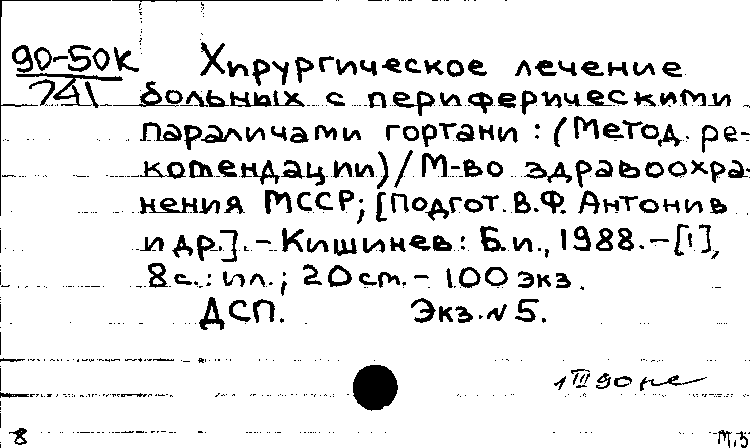 90-50К Хирургическое лечение
741 больных с периферическими
параличами гортани : (Метод. ре-
комендации) / М-во здравоохра-
нения МССР; [Подгот. В.Ф. Антонив
и др.]. - Кишинев : Б.и., 1988. - [1],
8 с. : ил. ; 20 см. - 100 экз.
ДСП. Экз. N 5.
1 III 90
8